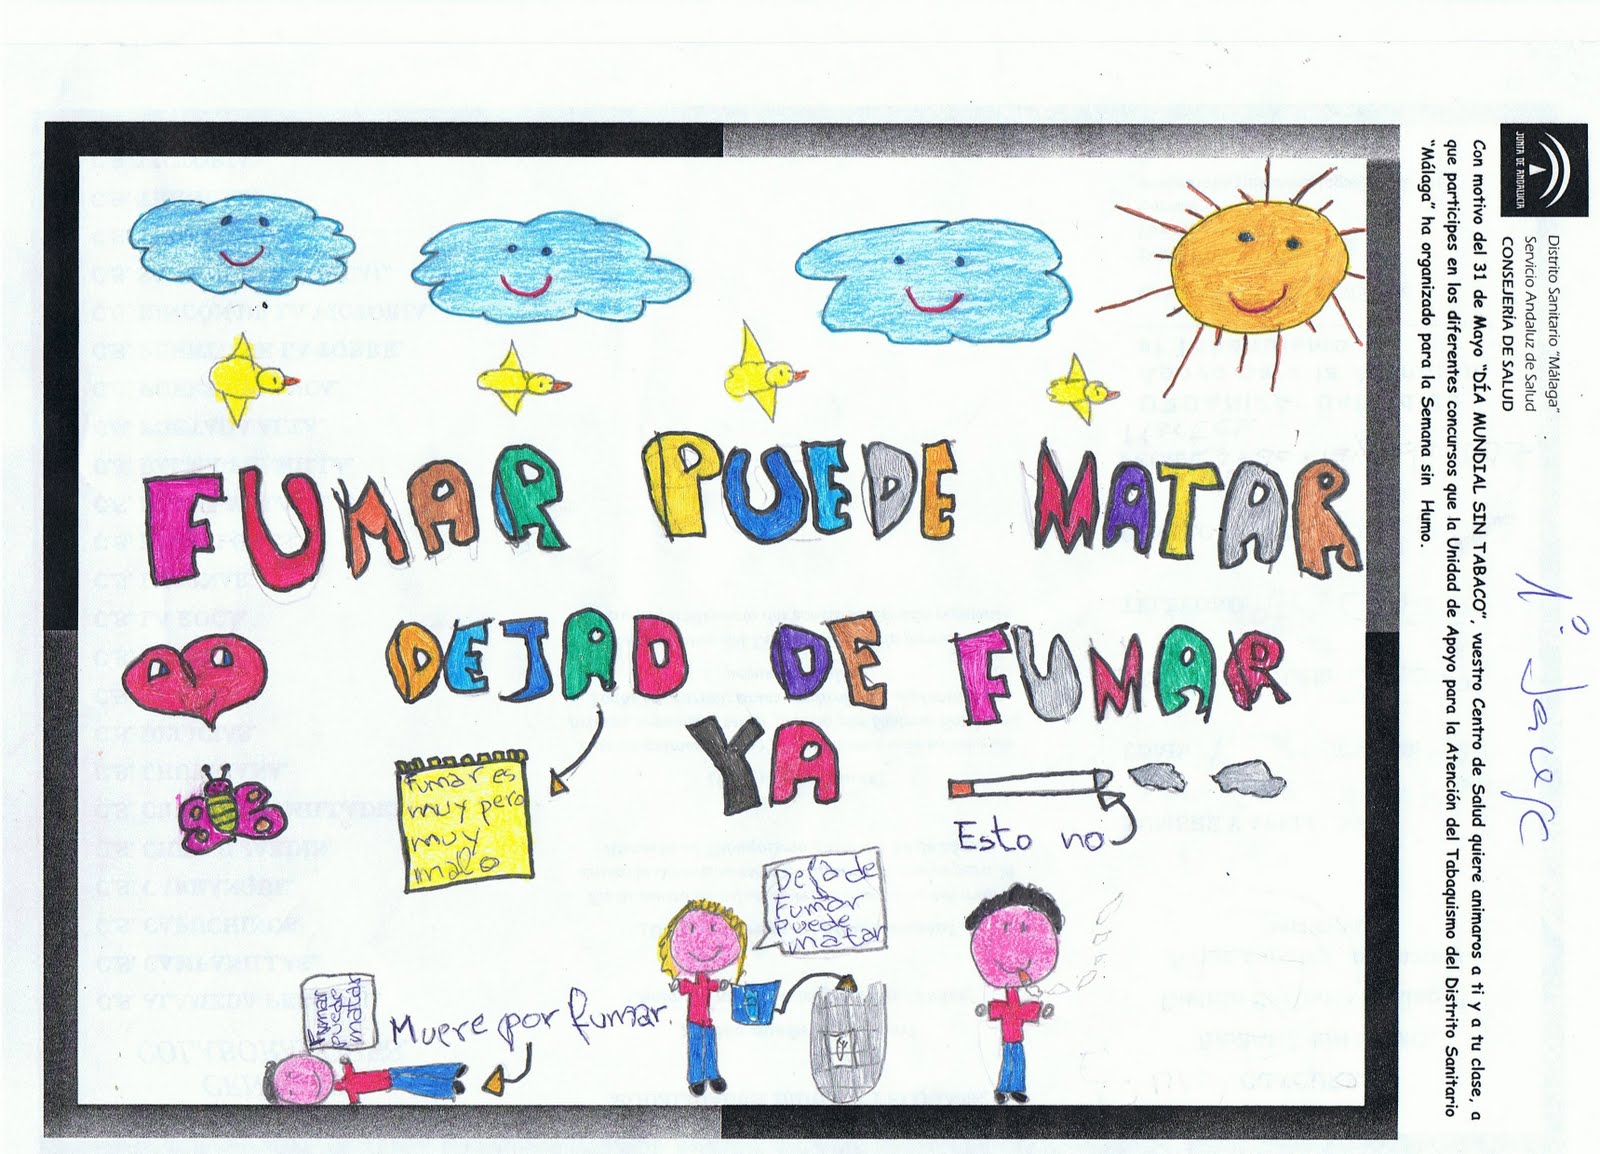 FUMAR PUEDE MATAR
DEJAD DE FUMAR
YA
Fumar es
muy pero
muy
malo
Esto no
Deja de
Fumar
Puede
matar
Muere por fumar.
JUNTA DE ANDALUCIA
Distrito Sanitario "Málaga"
Servicio Andaluz de Salud
CONSEJERÍA DE SALUD
Con motivo del 31 de Mayo "DÍA MUNDIAL SIN TABACO", vuestro Centro de Salud quiere animaros a ti y a tu clase, a
que participes en los diferentes concursos que la Unidad de Apoyo para la Atención del Tabaquismo del Distrito Sanitario
"Málaga" ha organizado para la Semana sin Humo.